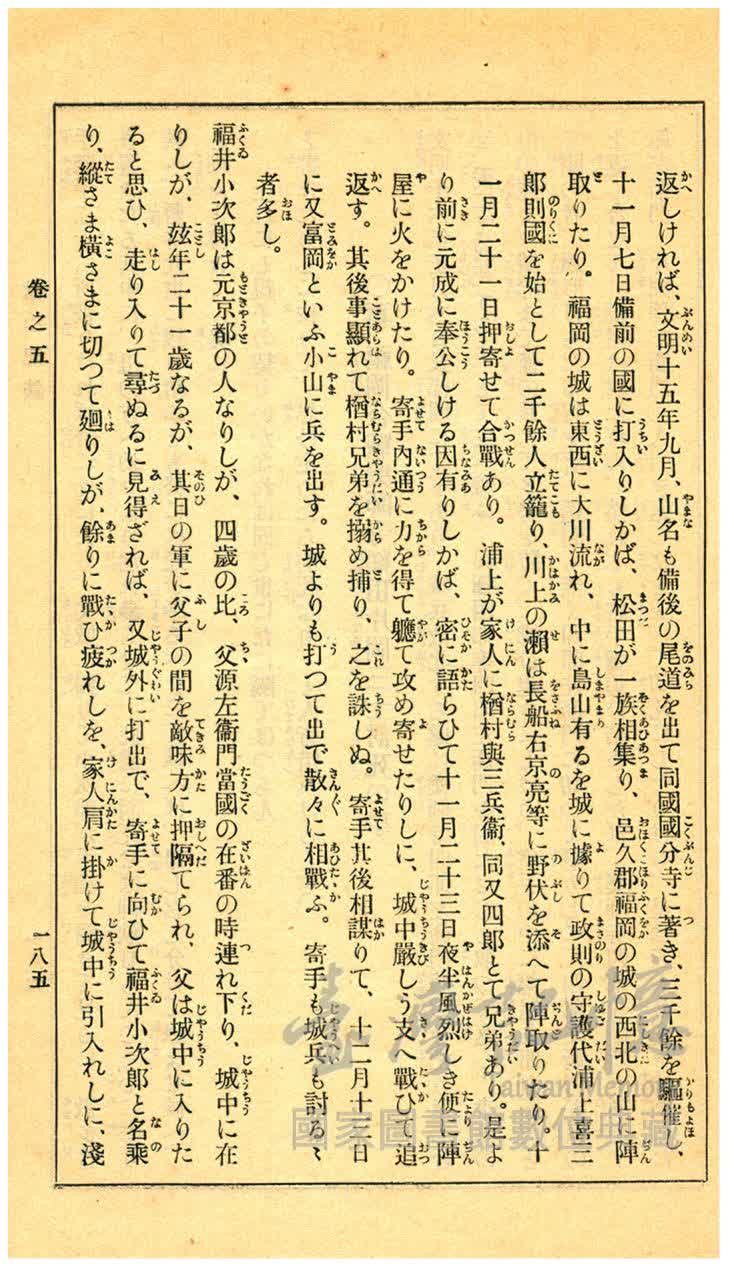 返しければ、文明十五年九月、山名も備後の尾道を出て同國國分寺に著き、三千餘を驅催し、
十一月七日備前の國に打入りしかば、松田が一族相集り、邑久郡福岡の城の西北の山に陣
取りたり。福岡の城は東西に大川流れ、中に島山有るを城に據りて政則の守護代浦上喜三
郎則國を始として二千餘人立籠り、川上の瀬は長船右京亮等に野伏を添へて陣取りたり。十
一月二十一日押寄せて合戰あり。浦上が家人に楢村與三兵衞、同又四郎とて兄弟あり。是よ
り前に元成に奉公しける因有りしかば、密に語らひて十一月二十三日夜半風烈しき便に陣
屋に火をかけたり。寄手內通に力を得て軈て攻め寄せたりしに、城中嚴しう支へ戰ひて追
返す。其後事顯れて楢村兄弟を搦め捕り、之を誅しぬ。寄手其後相謀りて、十二月十三日
に又富岡といふ小山に兵を出す。城よりも打つて出で散々に相戰ふ。寄手も城兵も討るゝ
者多し。
福井小次郎は元京都の人なりしが、四歲の比、父源左衞門當國の在番の時連れ下り、城中に在
りしが、玆年二十一歲なるが、其日の軍に父子の間を敵味方に押隔てられ、父は城中に入りた
ると思ひ、走り入りて尋ぬるに見得ざれば、又城外に打出で、寄手に向ひて福井小次郎と名乘
り、縱さま橫さまに切つて廻りしが、餘りに戰ひ疲れしを、家人肩に掛けて城中に引入れしに、淺
卷之五
一八五
臺灣記憶
Taiwan Memory
國家圖書館數位典藏